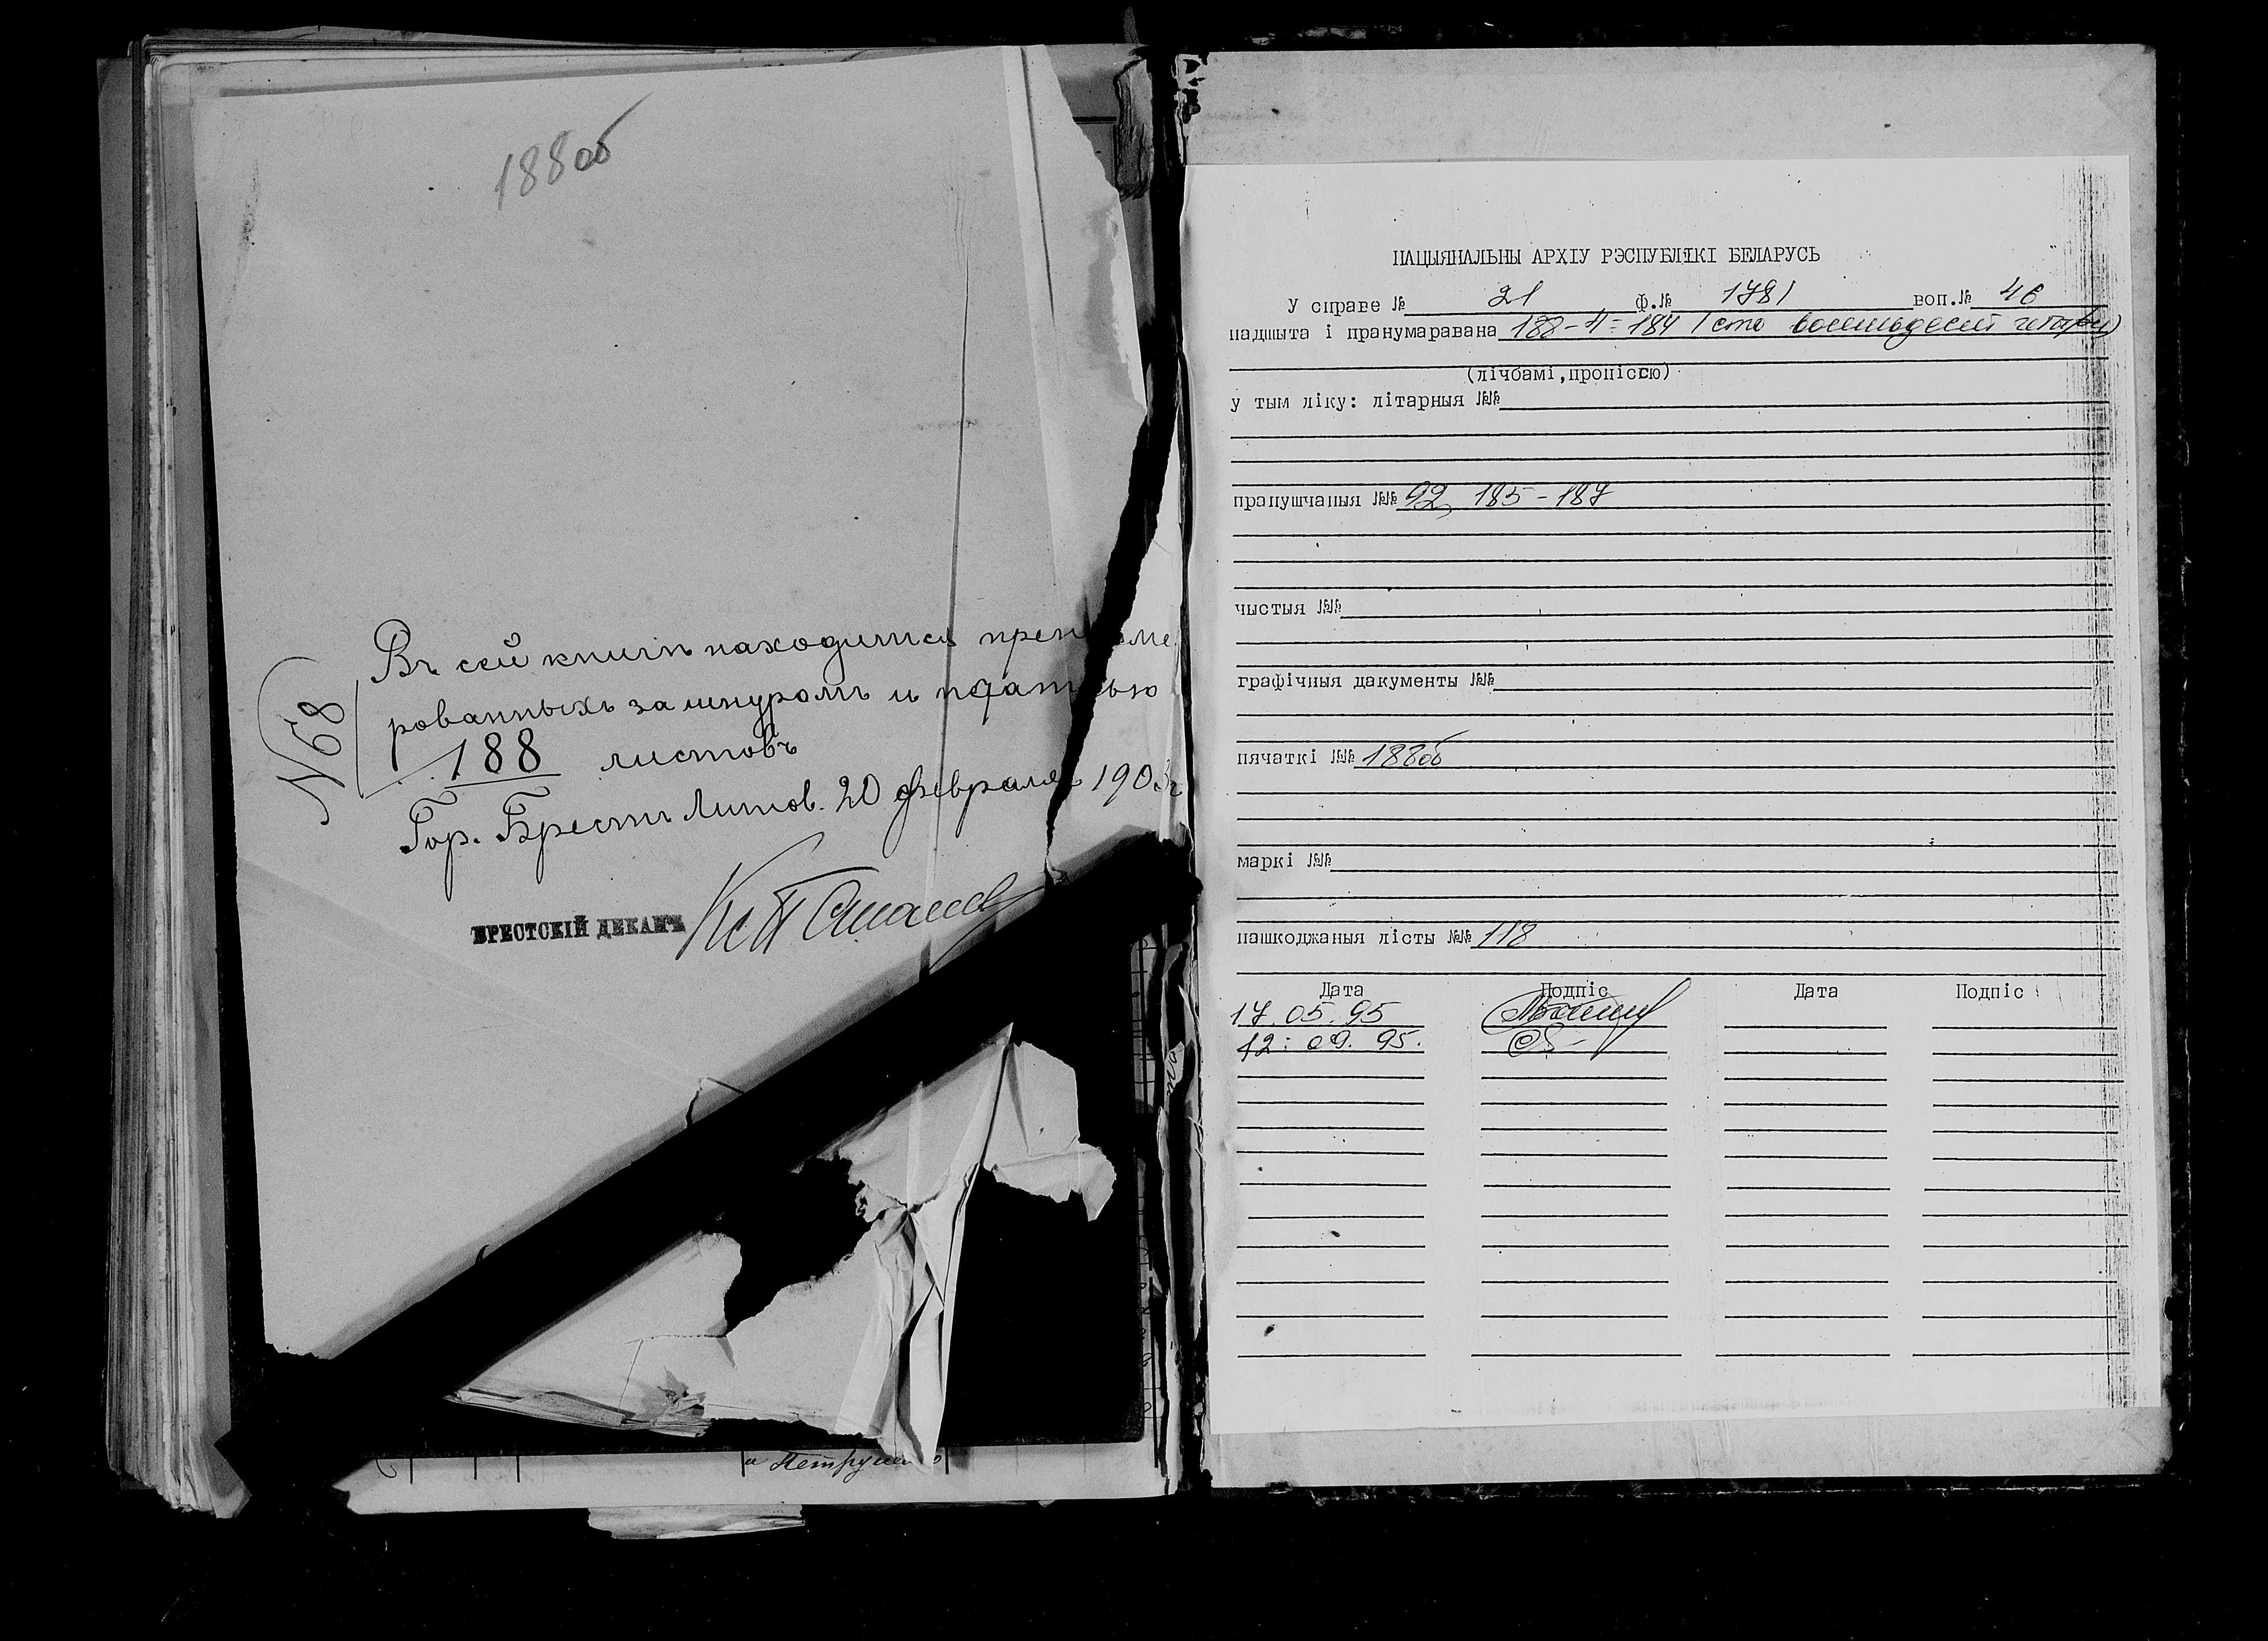 188об
Въ сей книгѣ находится прен ме
рованныхъ за шнуромъ и печатью
188 листовъ
№68
Гор. Брестъ Литов. 20 февраля 1903г
БРЕСТСКІЙ ДЕКАНЪ
и Петруш
НАЦЫЯНАЛЬНЫ АРХІУ РЭСПУБЛІКІ БЕЛАРУСЬ
У справе № 21 ф.№ 1781 воп.№ 46
падшыта і пранумаравана 188-4=184 (сто восемьдесят четыре)
(лічбамі,пропіссю)
у тым ліку: літарныя №№
прапушчаныя №№ 92, 185-187
чыстыя №№
графічныя дакументы №№
пячаткі №№ 188об
маркі №№
пашкоджаныя лісты №№ 118
Дата Подпіс Дата Подпіс
17.05.95
12.09.95.